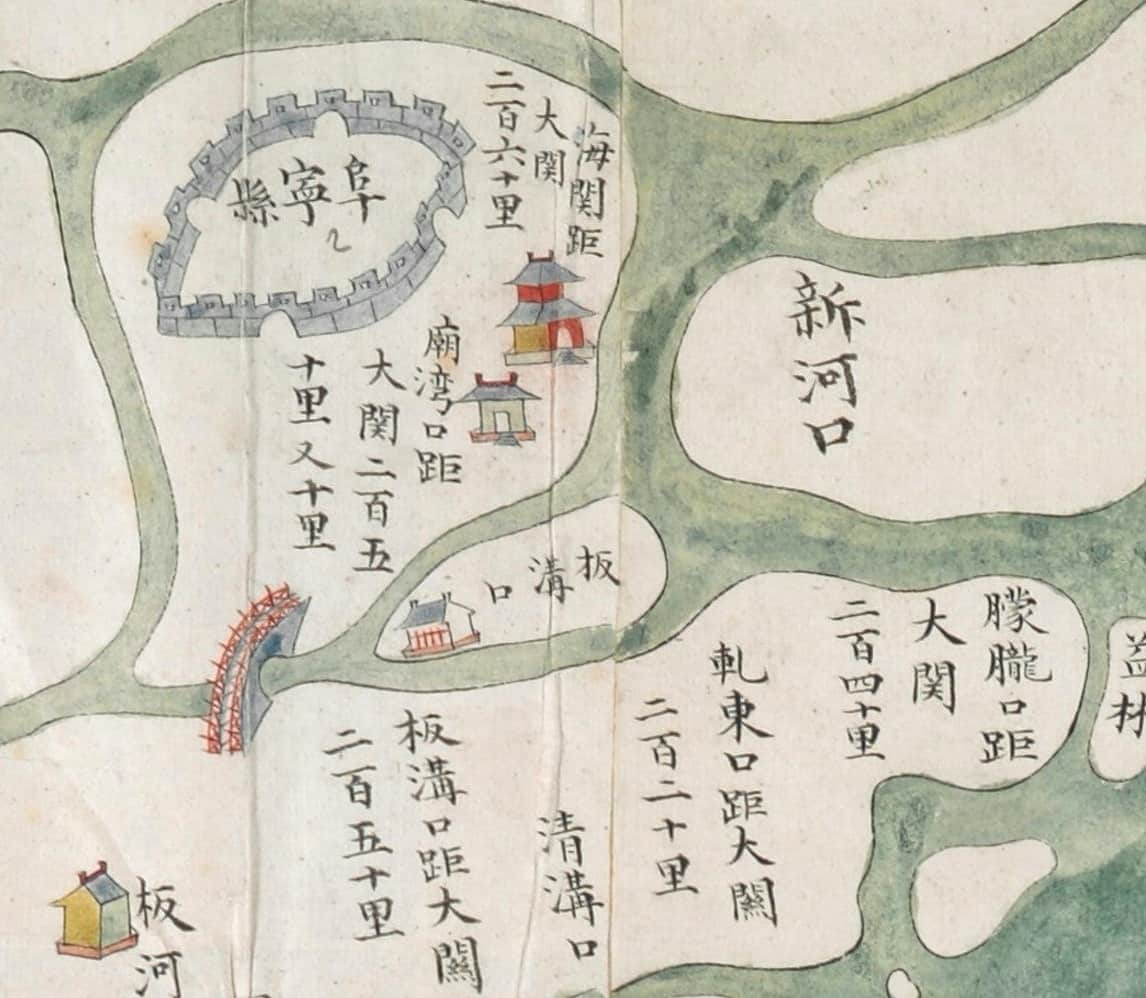 海関距
大関
二百六十里
阜寧縣
新河口
廟湾口距
大関二百五
十里又十里
板溝口
朦朧口距
大関
二百四十里
軋東口距大關
二百二十里
清溝口
板溝口距大關
二百五十里
板河